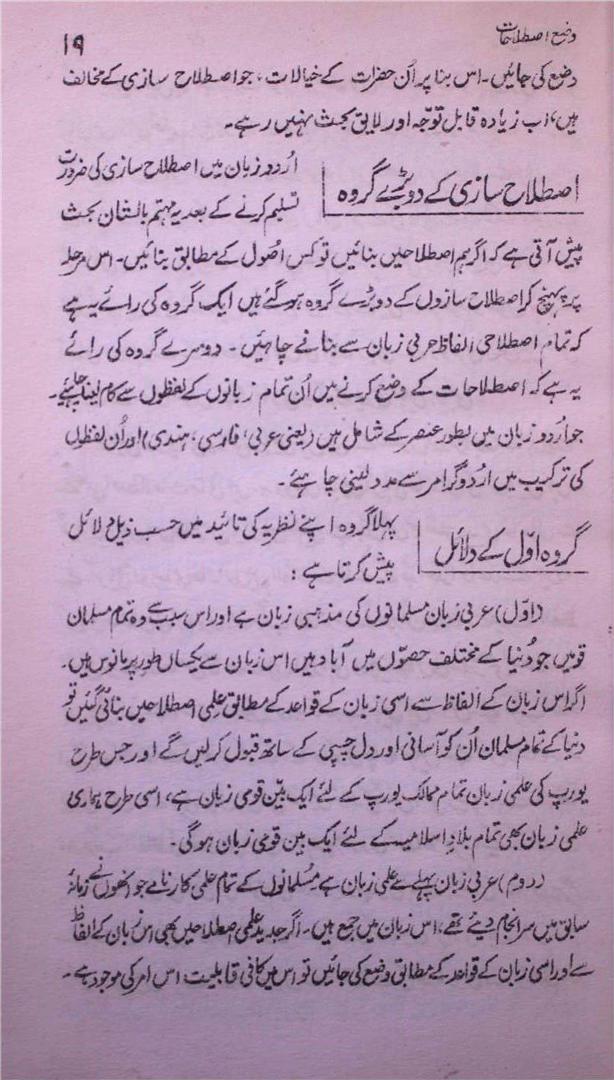 وضع اصطلاحات
۱۹
وضع کی جائیں۔ اس بنا پر اُن حضرات کے خیالات، جو اصطلاح سازی کے مخالف
ہیں، اب زیادہ قابل توجّہ اور لایق بحث نہیں رہے۔
اصطلاح سازی کے دو بڑے گروہ
اُردو زبان میں اصطلاح سازی کی ضرورت
تسلیم کرنے کے بعد یہ مہتم بالشان بحث
پیش آتی ہے کہ اگر ہم اصطلاحیں بنائیں تو کس اصُول کے مطابق بنائیں۔ اس مرحلہ
پر پہنچ کر اصطلاح سازوں کے دو بڑے گروہ ہو گئے ہیں ایک گروہ کی رائے یہ ہے
کہ تمام اصطلاحی الفاظ عربی زبان سے بنانے چاہئیں۔ دوسرے گروہ کی رائے
یہ ہے کہ اصطلاحات کے وضع کرنے میں اُن تمام زبانوں کے لفظوں سے کام لینا چاہئے۔
جو اُردو زبان میں بطور عنصر کے شامل ہیں (یعنی عربی، فارسی، ہندی) اور اُن لفظوں
کی ترکیب میں اُردو گرامر سے مدد لینی چاہئے۔
گروہ اوّل کے دلائل
پہلا گروہ اپنے نظریہ کی تائید میں حسب ذیل دلائل
پیش کرتا ہے:
(اوّل) عربی زبان مسلمانوں کی مذہبی زبان ہے اور اس سبب سے وہ تمام مسلمان
قومیں جو دُنیا کے مختلف حصّوں میں آباد ہیں اس زبان سے یکساں طور پر مانوس ہیں۔
اگر اس زبان کے الفاظ سے اسی زبان کے قواعد کے مطابق علمی اصطلاحیں بنائی گئیں تو
دنیا کے تمام مسلمان اُن کو آسانی اور دل چسپی کے ساتھ قبول کرلیں گے اور جس طرح
یورپ کی علمی زبان تمام ممالک یورپ کے لئے ایک بین قومی زبان ہے، اسی طرح ہماری
علمی زبان بھی تمام بلادِ اسلامیہ کے لئے ایک بین قومی زبان ہوگی۔
(دوم) عربی زبان پہلے سے علمی زبان ہے مُسلمانوں کے تمام علمی کارنامے جو انھوں نے زمانۂ
سابق میں سرانجام دیئے تھے، اس زبان میں جمع ہیں۔ اگر جدید علمی اصطلاحیں بھی اس زبان کے الفاظ
سے اور اسی زبان کے قواعد کے مطابق وضع کی جائیں تو اس میں کافی قابلیت اس امر کی موجود ہے۔